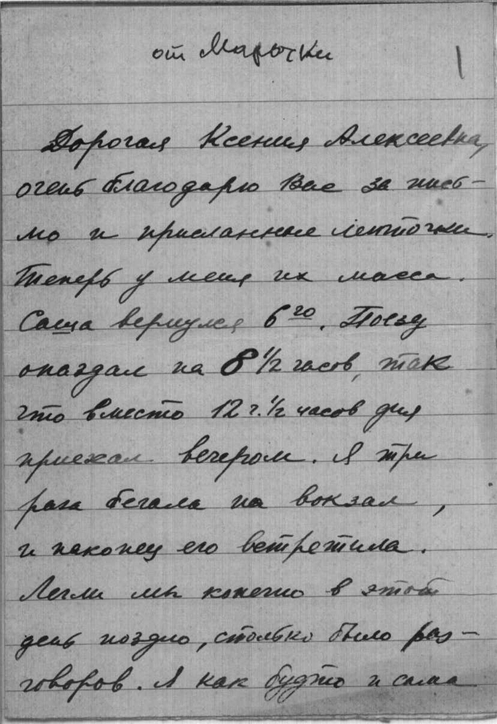 от Марочки
1
Дорогая Ксения Алексеевна,
очень благодарю Вас за пись-
мо и присланные ленточки.
Теперь у меня их масса.
Саша вернулся 6го. Поезд
опаздал на 8 1/2 часов, так
что вместо 12 ч. 1/2 часов дня
приехал вечером. Я три
раза бегала на вокзал,
и наконец его встретила.
Легли мы конечно в этот
день поздно, столько было раз-
говоров. Я как будто и сама